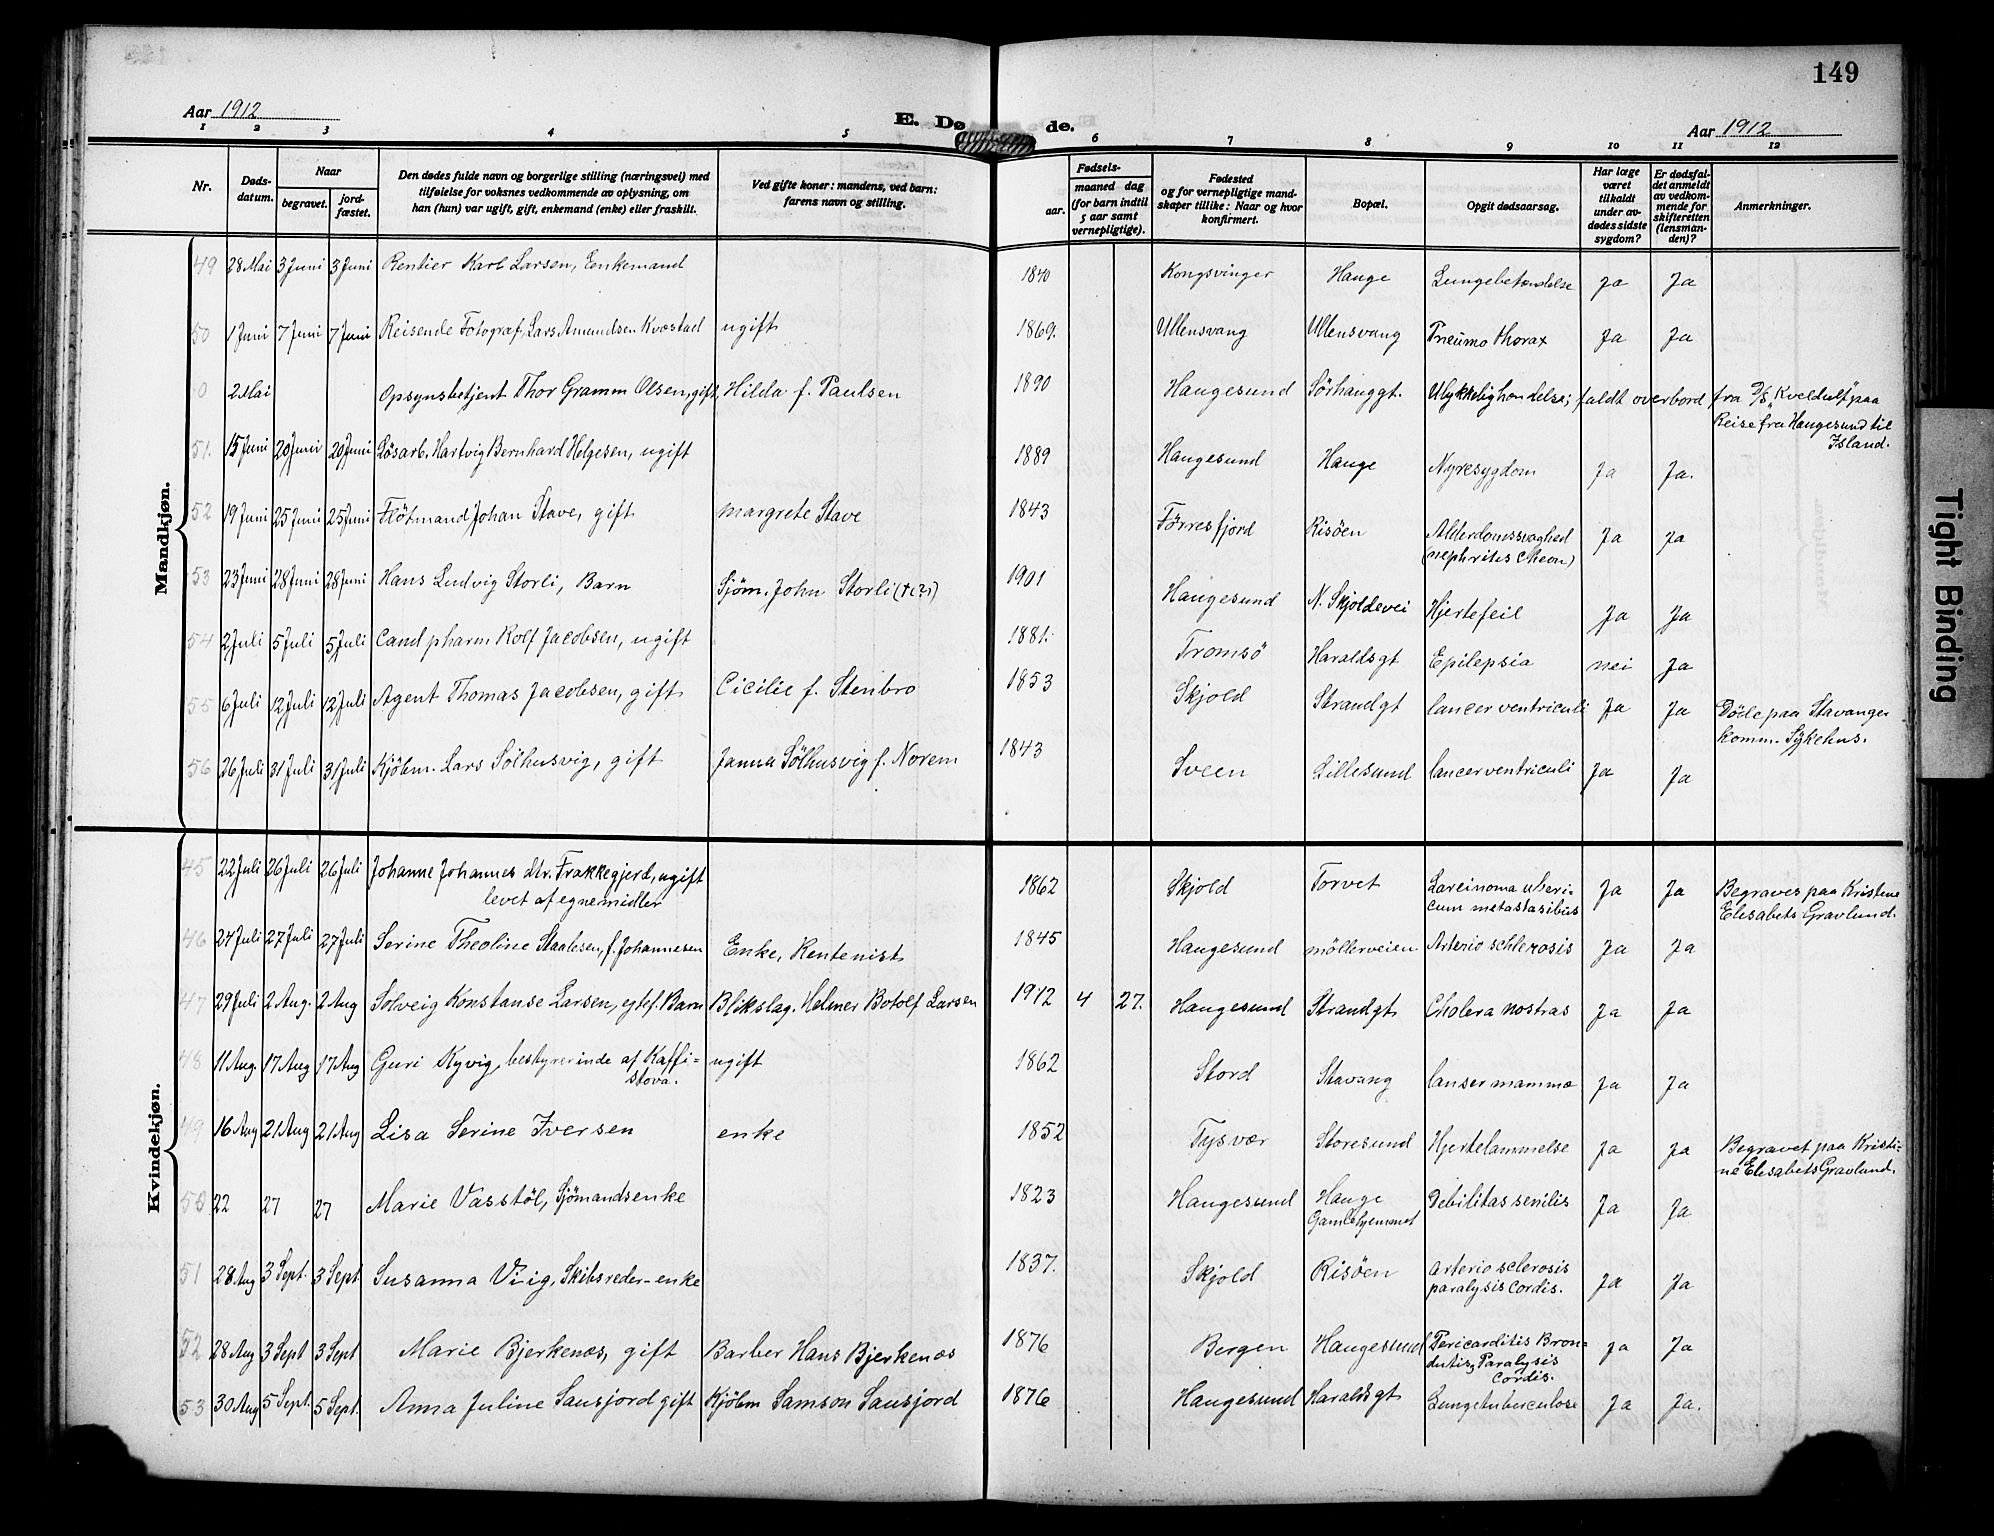 149
Aar 1912
E. Dø
de.
Aar 1912
1 2 3 4 5 6 7 8 9 10 11 12
Nr.
Døds-
datum.
Naar
begravet.
jord-
fæstet.
Den dødes fulde navn og borgerlige stilling (næringsvei) med
tilføielse for voksnes vedkommende av oplysning, om
han (hun) var ugift, gift, enkemand (enke) eller fraskilt.
Ved gifte koner: mandens, ved barn:
farens navn og stilling.
Fødsels-
aar.
maaned dag
(for barn indtil
5 aar samt
vernepligtige).
Fødested
og for vernepligtige mand-
skaper tillike: Naar og hvor
konfirmert.
Bopæl.
Opgit dødsaarsag.
Har læge
været
tilkaldt
under av-
dødes sidste
sygdom?
Er dødsfal-
det anmeldt
av vedkom-
mende for
skifteretten
(lensman-
den)?
Anmerkninger.
Mandkjøn.
49 28 Mai 3 Juni 3 Juni Rentier Karl Larsen, Enkemand 1840 Kongsvinger Hauge Lungebetændelse Ja Ja
50 1 Juni 7 Juni 7 Juni Reisende Fotograf, Lars Amundsen Kvæstad ugift 1869. Ullensvang Ullensvang Pneumo thorax Ja Ja
0 2 Mai Opsynsbetjent Thor Gramm Olsen, gift, Hilda f. Paulsen 1890 Haugesund Sörhauggt. Ulykkelig hændelse; faldt overbord fra D/S „Kveldulf" paa
Reise fra Haugesund til
Island.
51. 15 Juni 20 Juni 20 Juni Løsarb. Hartvig Bernhard Helgesen, ugift 1889 Haugesund Hauge Nyresygdom Ja Ja.
52 19 Juni 25 Juni 25 Juni Fløtmand Johan Stave, gift Margrete Stave 1843 Førresfjord Risöen Alderdomssvaghed Ja Ja
(nephritis Cheon)
53 23 Juni 28 Juni 28 Juni Hans Ludvig Storli, Barn Sjøm. John Storli (+(?)) 1901 Haugesund N. Skjoldevei Hjertefeil Ja Ja
54 2 Juli 5 Juli 5 Juli Cand pharm Rolf Jacobsen, ugift 1881. Tromsö Haraldsgt Epilepsia nei Ja
55 6 Juli 12 Juli 12 Juli Agent Thomas Jacobsen, gift Cicilie f. Stenbro 1853 Skjold Strandgt Cancer ventriculi Ja Ja Döde paa Stavanger
komm. Sykehus.
56 26 Juli 31 Juli 31 Juli Kjøbm. Lars Sölhusvig, gift Janna Sölhusvig f. Norem 1843 Sveen Lillesund Cancer ventriculi Ja Ja
Kvindekjøn.
45 22 Juli 26 Juli 26 Juli Johanne Johannes dtr. Frakkegjerd, ugift 1862 Skjold Torvet Carcinoma uteri- Ja Ja Begraves paa Kristine
levet af egne midler cum metastasibus Elesabets Gravlund.
46 24 Juli 27 Juli 27 Juli Serine Theoline Staalesen, f. Johannesen Enke, Rentenist 1845 Haugesund Möllerveien Arterio schlerosis Ja Ja
47 29 Juli 2 Aug. 2 Aug Solveig Konstanse Larsen, egtef. Barn Blikslag. Helmer Botolf Larsen 1912 4 27. Haugesund Strandgt Cholera nostras Ja Ja
48 11 Aug. 17 Aug 17 Aug Guri Kyvig, bestyrerinde af Kaffi- ugift 1862 Stord Stavang Canser mammæ Ja Ja
stova.
49 16 Aug 21 Aug 21 Aug Lisa Serine Iversen enke 1852 Tysvær Storesund Hjertelammelse Ja Ja Begravet paa Kristi-
ne Elesabets Gravlund.
50 22 27 27 Marie Vasstöl, Sjömandsenke 1823 Haugesund Hauge Debilitas senilis Ja Ja
Gamlehjemmet
51 28 Aug 3 Sept. 3 Sept Susanna Viig, Skibsreder-enke 1837. Skjold Risöen Arterio sclerosis Ja Ja
paralysis Cordis.
52 28 Aug 3 Sept 3 Sept Marie Bjerkenæs, gift Barber Hans Bjerkenæs 1876 Bergen Haugesund Pericarditis Bron- Ja Ja
Paralysis
Cordis.
53 30 Aug 5 Sept. 5 Sept. Anna Juline Sausjord gift Kjöbm Samson Sausjord 1876 Haugesund Haraldsgt Lungetuberculose Ja Ja.
Tight Binding